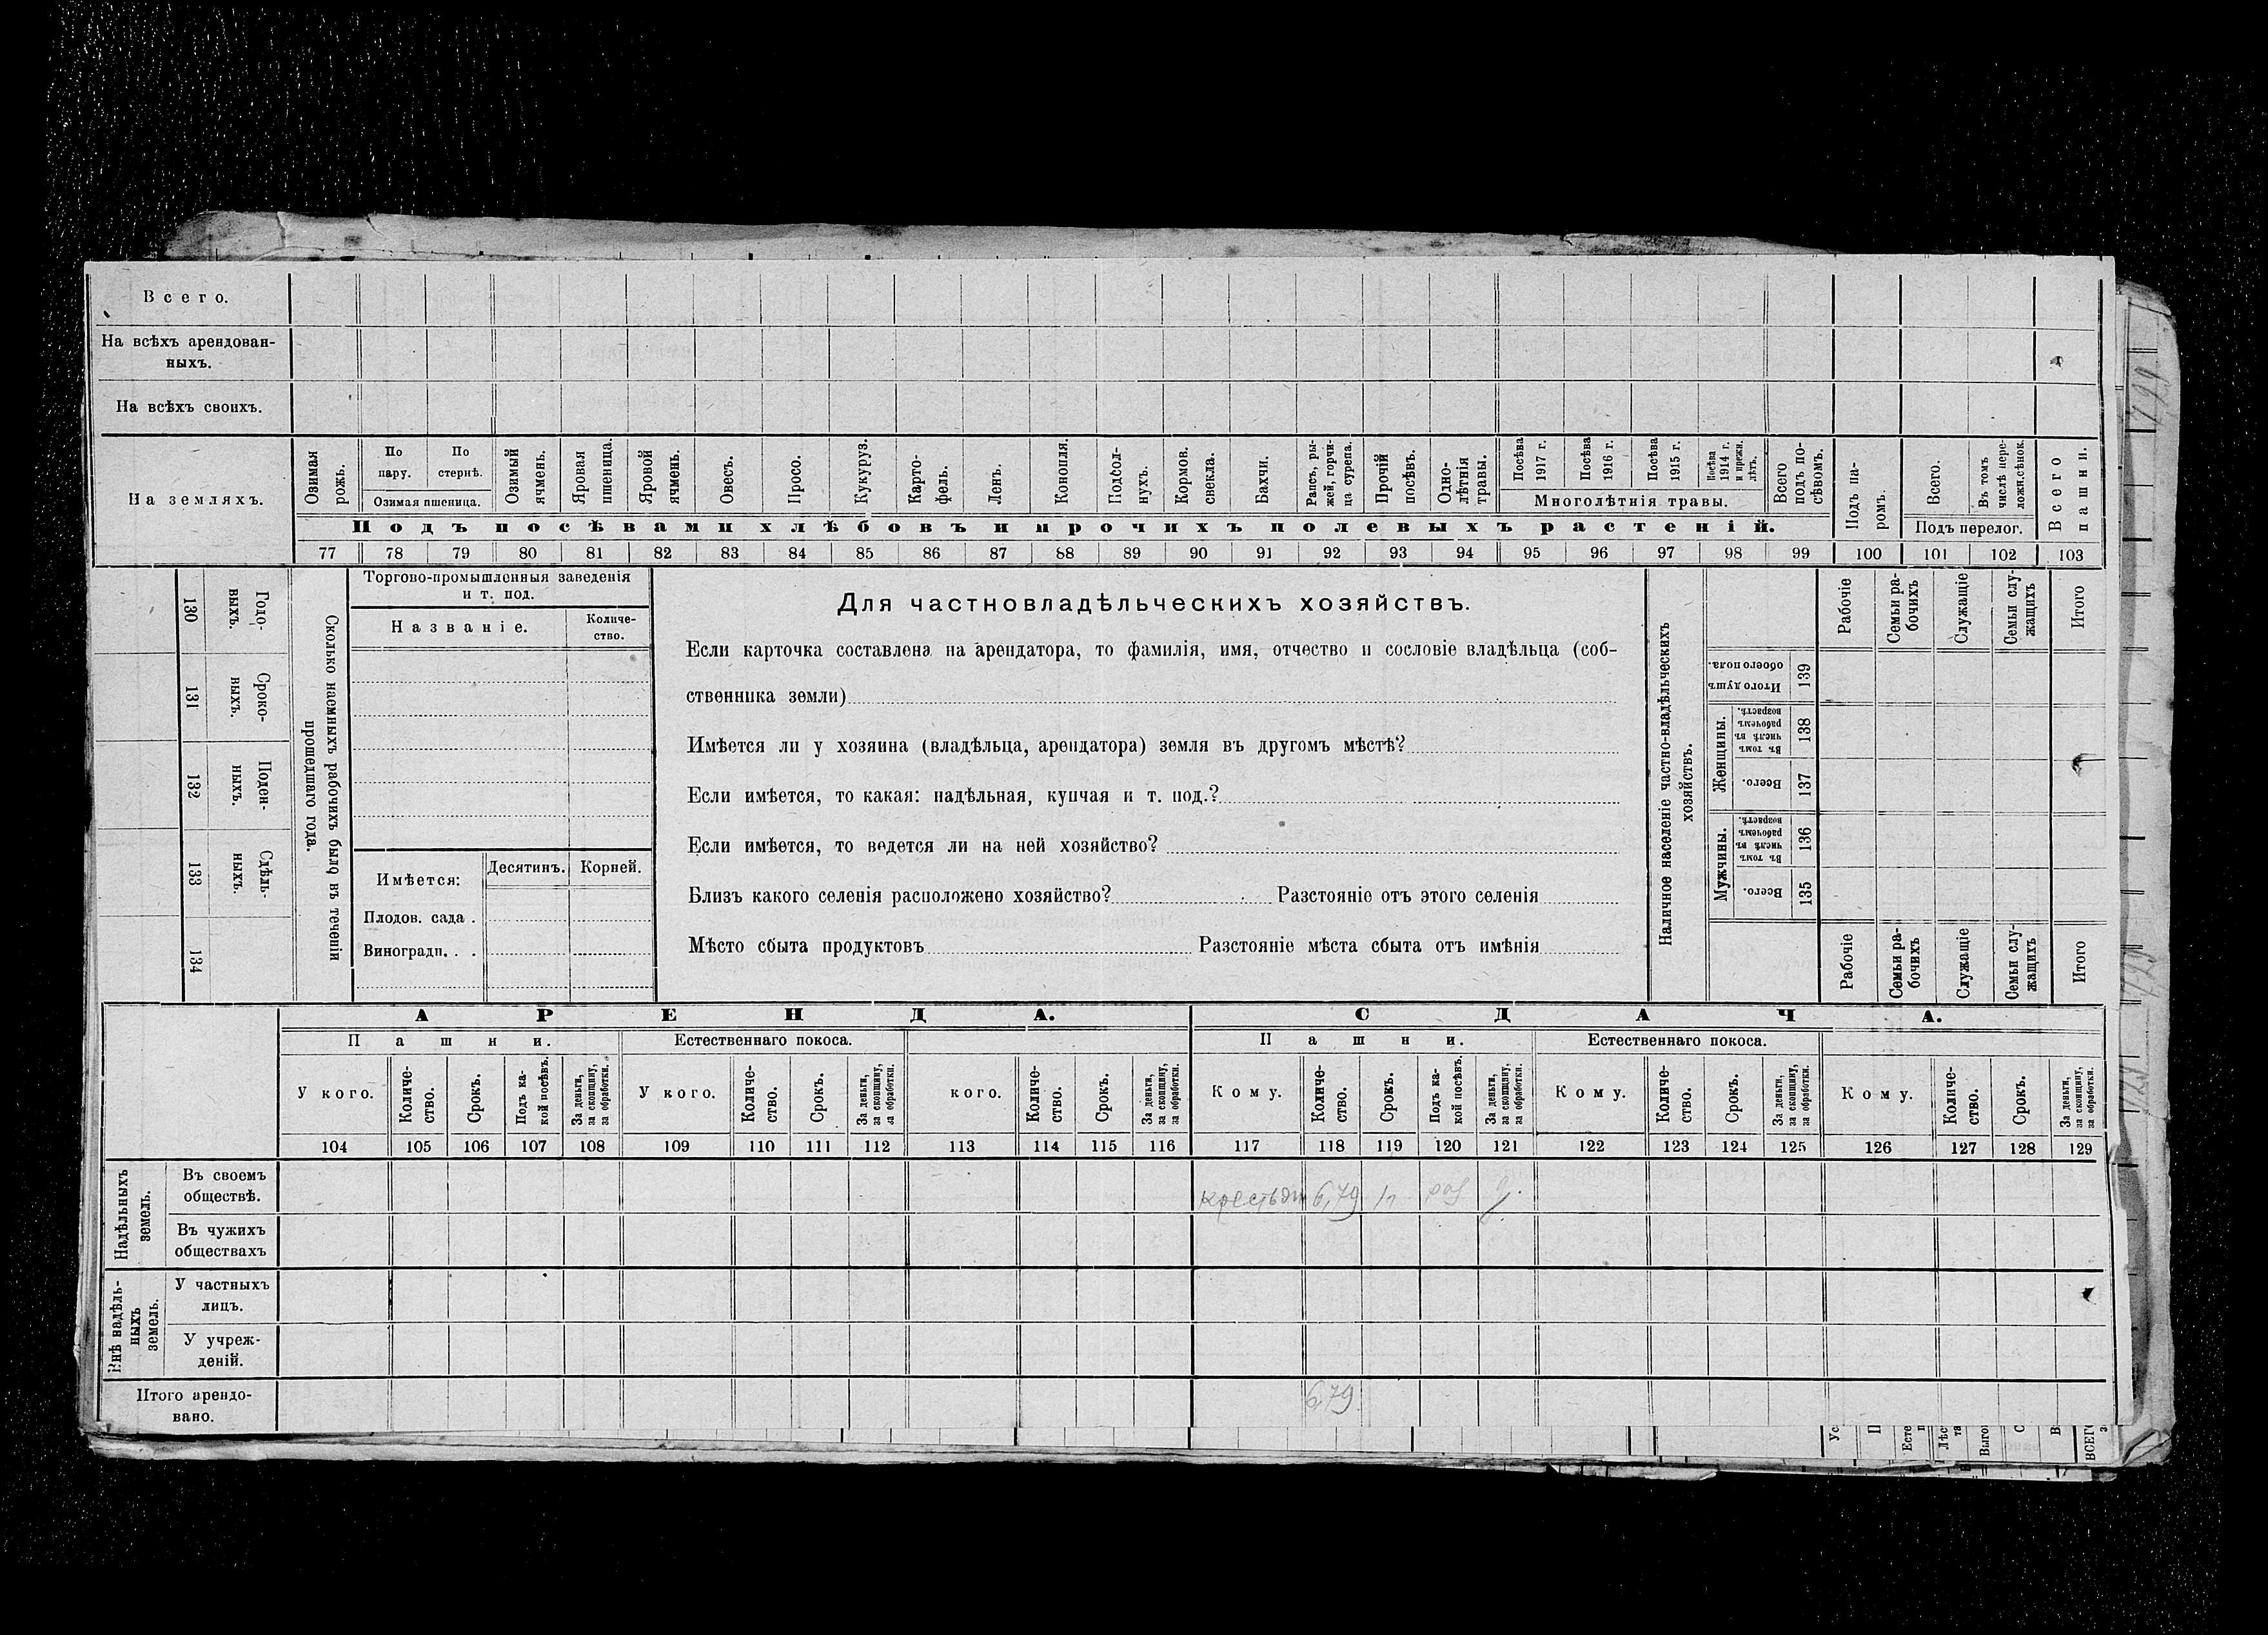 Всего.
На всѣхъ арендован-
ныхъ.
На всѣхъ своихъ.
На земляхъ.
Озимая рожь.
По пару.
По стернѣ.
Озимая пшеница.
Озимый ячмень.
Яровая пшеница.
Яровой ячмень.
Овесъ.
Просо.
Кукуруз.
Карто-
фель.
Ленъ.
Конопля.
Подсол-
нухъ.
Кормов.
свекла.
Бахчи.
Рапсъ, ры-
жей, горчи-
ца сурепа.
Прочій
посѣвъ.
Одно-
лѣтнія
травы.
Посѣва
1917 г.
Посѣва
1916 г.
Посѣва
1915 г.
Посѣва
1914 г.
и прежн.
лѣтъ.
Многолѣтнія травы.
Всего
подъ по-
сѣвомъ.
Подъ па-
ромъ.
Всего.
Въ томъ
числѣ пере-
ложн.сѣнок.
Подъ перелог.
Всего
пашни.
Подъ посѣвами хлѣбовъ и прочихъ полевыхъ растеній.
77 78 79 80 81 82 83 84 85 86 87 88 89 90 91 92 93 94 95 96 97 98 99 100 101 102 103
130 Годо-
выхъ.
131 Сроко-
выхъ.
132 Поден-
ныхъ.
133 Сдѣль-
ныхъ.
134
Сколько наемныхъ рабочихъ было въ теченіи
прошедшаго года.
Торгово-промышленныя заведенія
и т. под.
Названіе.
Количе-
ство.
Имѣется:
Десятинъ.
Корней.
Плодов. сада .
Виноградн. . .
Для частновладѣльческихъ хозяйствъ.
Если карточка составлена на арендатора, то фамилія, имя, отчество и сословіе владѣльца (соб-
ственника земли)
Имѣется ли у хозяина (владѣльца, арендатора) земля въ другомъ мѣстѣ?
Если имѣется, то какая: надѣльная, купчая и т. под.?
Если имѣется, то ведется ли на ней хозяйство?
Близъ какого селенія расположено хозяйство? Разстояніе отъ этого селенія
Мѣсто сбыта продуктовъ Разстояніе мѣста сбыта отъ имѣнія
Наличное населеніе частно-владѣльческихъ
хозяйствъ.
Рабочіе
Семьи ра-
бочихъ
Служащіе
Семьи слу-
жащихъ
Итого
Итого душъ
обоего пола.
139
Женщины.
Въ томъ
числѣ въ
рабочемъ
возрастѣ.
138
Всего.
137
Мужчины.
Въ томъ
числѣ въ
рабочемъ
возрастѣ.
136
Всего.
135
Рабочіе
Семьи ра-
бочихъ
Служащіе
Семьи слу-
жащихъ
Итого
АРЕНДА.
СДАЧА.
Пашни.
Естественнаго покоса.
Пашни.
Естественнаго покоса.
У кого.
Количе-
ство.
Срокъ.
Подъ ка-
кой посѣвъ.
За деньги,
за скопщину,
за обработки.
У кого.
Количе-
ство.
Срокъ.
За деньги,
за скопщину,
за обработки.
кого.
Количе-
ство.
Срокъ.
За деньги,
за скопщину,
за обработки.
Кому.
Количе-
ство.
Срокъ.
Подъ ка-
кой посѣвъ.
За деньги,
за скопщину,
за обработки.
Кому.
Количе-
ство.
Срокъ.
За деньги,
за скопщину,
за обработки.
Кому.
Количе-
ство.
Срокъ.
За деньги,
за скопщину,
за обработки.
104 105 106 107 108 109 110 111 112 113 114 115 116 117 118 119 120 121 122 123 124 125 126 127 128 129
Надѣльныхъ
земель.
Въ своемъ
обществѣ.
крестьян 6,79
Въ чужихъ
обществахъ
Внѣ надѣль-
ныхъ
земель.
У частныхъ
лицъ.
У учреж-
деній.
Итого арендо-
вано.
6,79
Ус
П
Есте
п
Лѣс
та
Выго
С
В
ВСЕГ
з